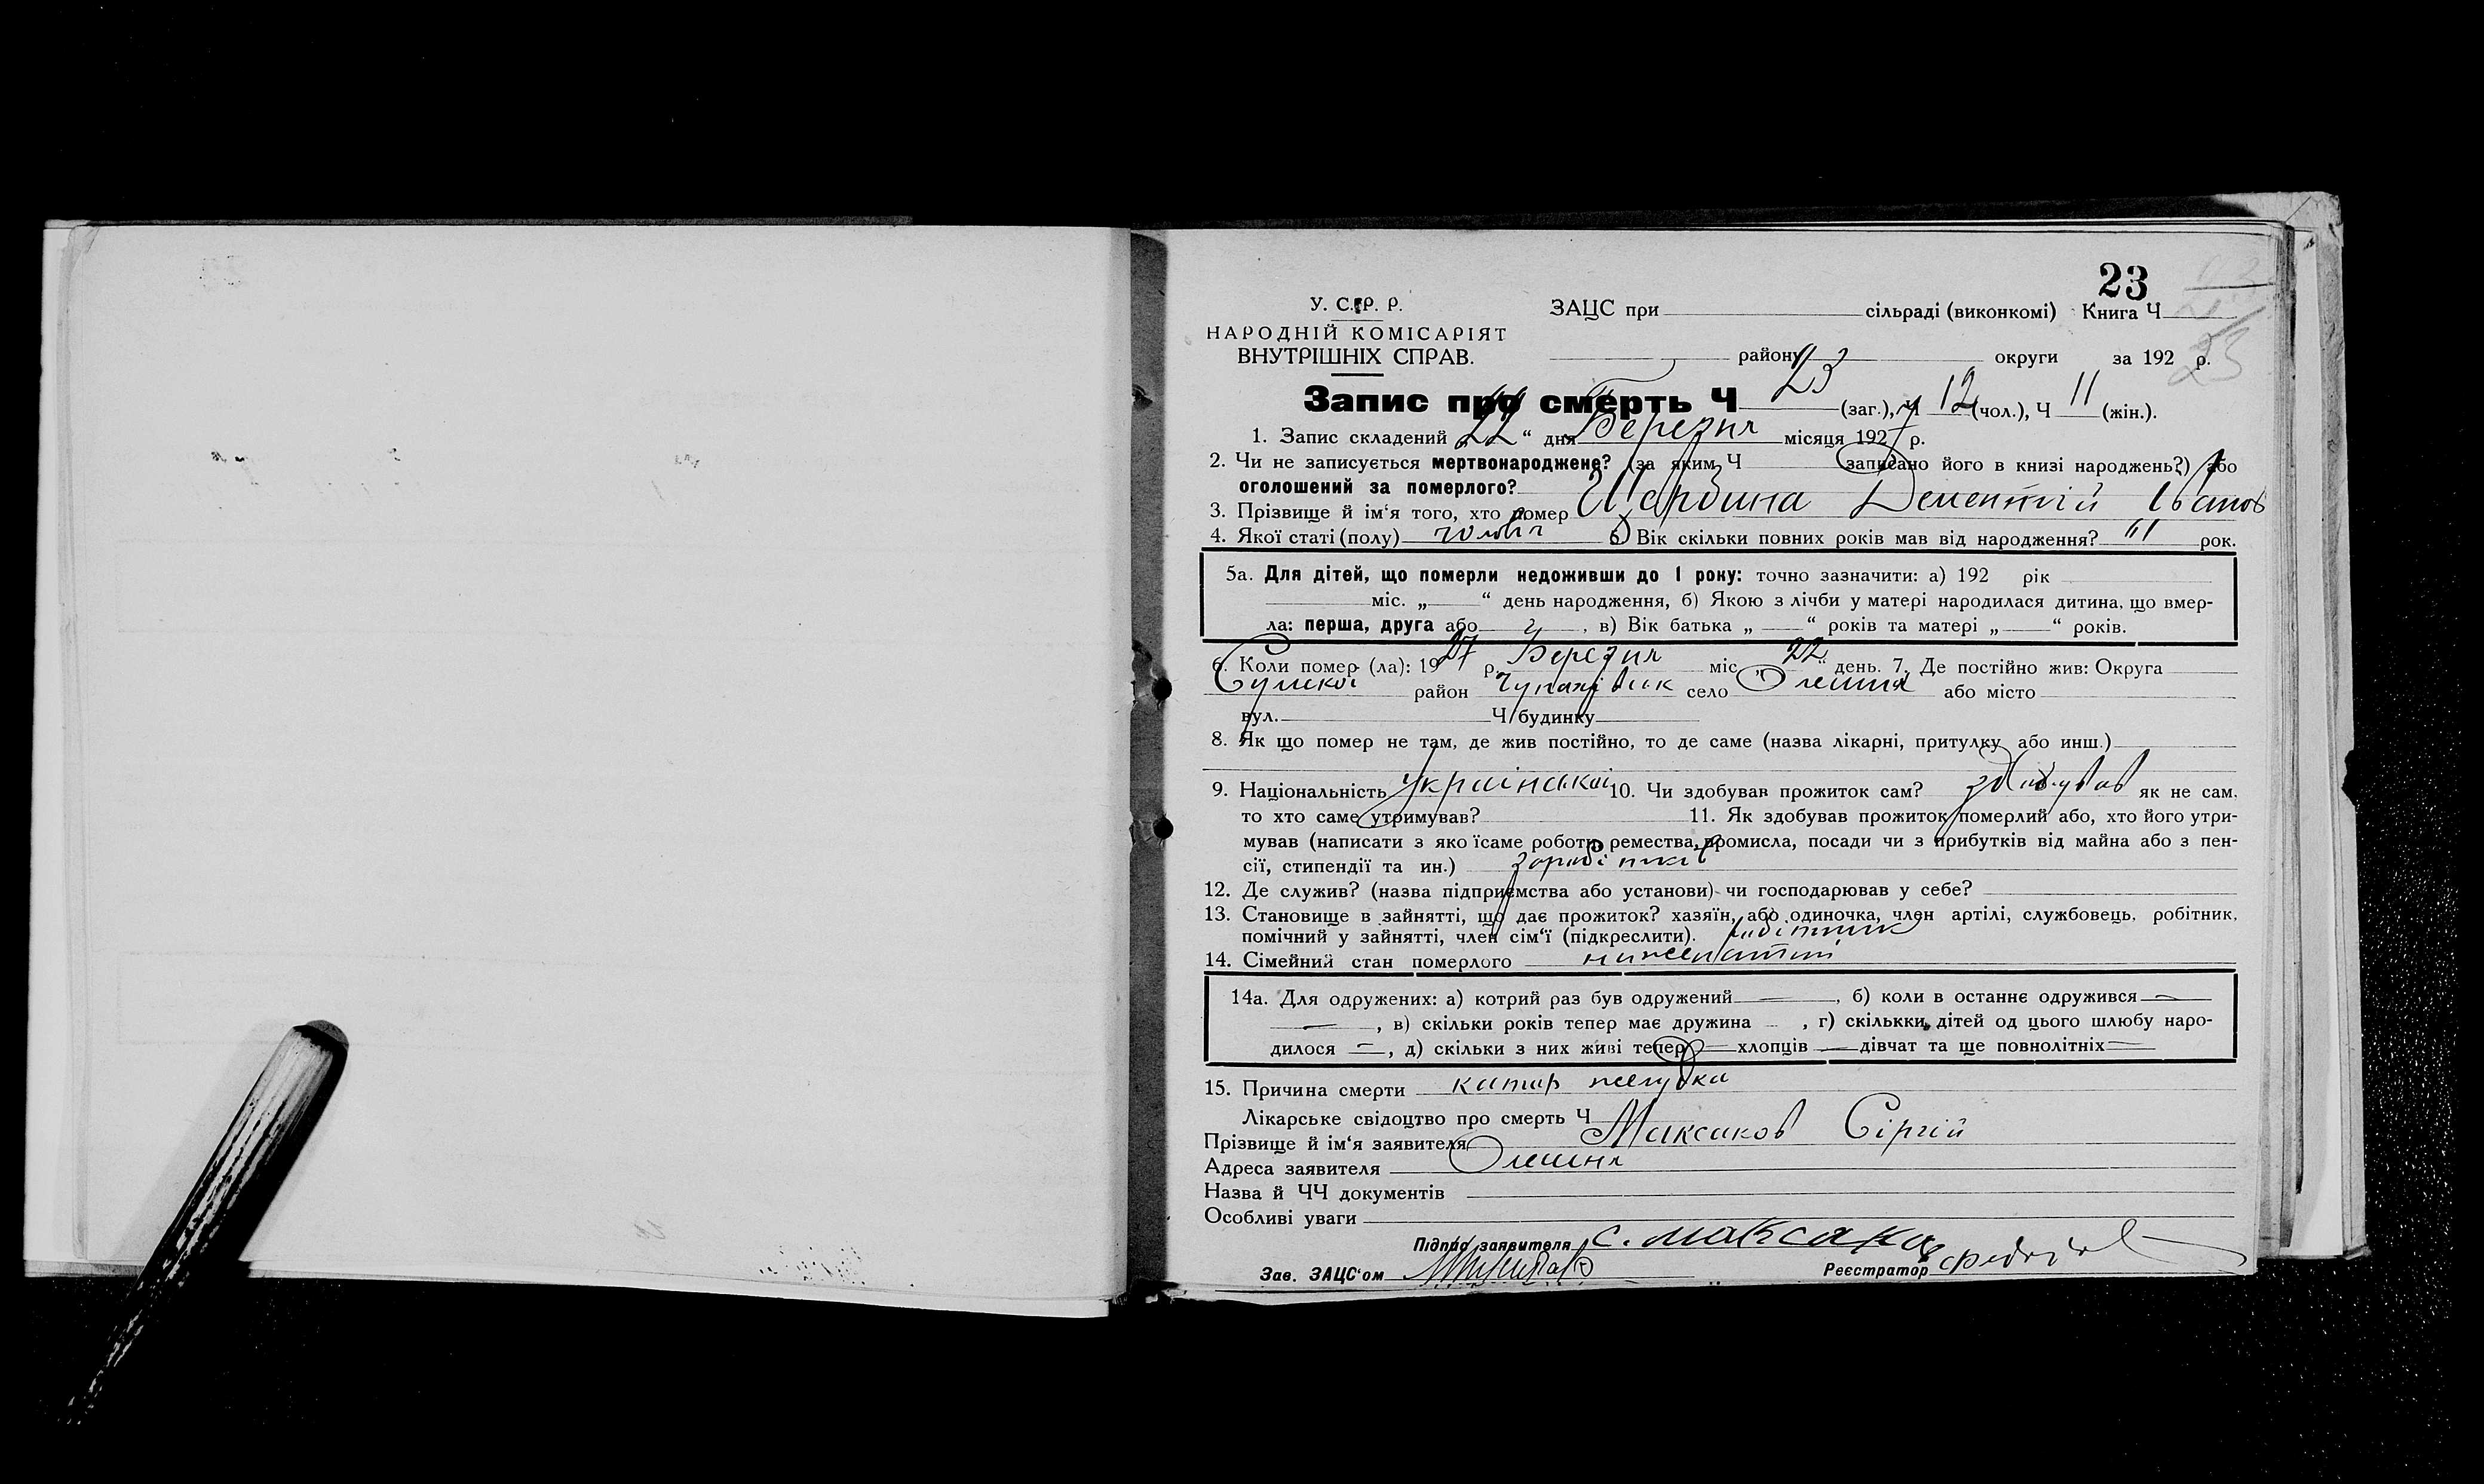 23
У. С. Р. Р.
ЗАЦС при сільраді (виконкомі) Книга Ч
НАРОДНІЙ КОМІСАРІЯТ
ВНУТРІШНІХ СПРАВ.
району округи за 192 р.
23
Запис про смерть Ч 23 (заг.), Ч 12 (чол.), Ч 11 (жін.).
1. Запис складений „22“ дня Березня місяця 1927 р.
2. Чи не записується мертвонароджене? (за яким Ч записано його в книзі народжень?) або
оголошений за померлого?
3. Прізвище й ім‘я того, хто помер Щербина Дементій Іванов
4. Якої статі (полу) 5. Вік скільки повних років мав від народження? рок.
5а. Для дітей, що померли недоживши до 1 року: точно зазначити: а) 192 рік
міс. „ “ день народження, б) Якою з лічби у матері народилася дитина, що вмер-
ла: перша, друга або , в) Вік батька „ “ років та матері „ “ років.
6. Коли помер (ла): 1927 р. Березня міс. „22“ день. 7. Де постійно жив: Округа
Сумської район Чупахівськ село Олешня або місто
вул. Ч будинку
8. Як що помер не там, де жив постійно, то де саме (назва лікарні, притулку або инш.)
9. Національність Української 10. Чи здобував прожиток сам? здобував як не сам,
то хто саме утримував? 11. Як здобував прожиток померлий або, хто його утри-
мував (написати з яко їсаме роботи ремества, промисла, посади чи з прибутків від майна або з пен-
сії, стипендії та ин.) заробітків
12. Де служив? (назва підприємства або установи) чи господарював у себе?
13. Становище в зайнятті, що дає прожиток? хазяїн, або одиночка, член артілі, службовець, робітник,
помічний у зайнятті, член сім‘ї (підкреслити). робітник
14. Сімейний стан померлого ниженатий
14а. Для одружених: а) котрий раз був одружений — , б) коли в останнє одружився —
— , в) скільки років тепер має дружина – , г) скількки дітей од цього шлюбу наро-
дилося — , д) скільки з них живі тепер — хлопців — дівчат та ще повнолітніх —
15. Причина смерти катар желудка
Лікарське свідоцтво про смерть Ч
Прізвище й ім‘я заявителя Максаков Сергій
Адреса заявителя Олешня
Назва й ЧЧ документів
Особливі уваги
Підпис заявителя С. Максаков
Зав. ЗАЦС‘ом Реєстратор